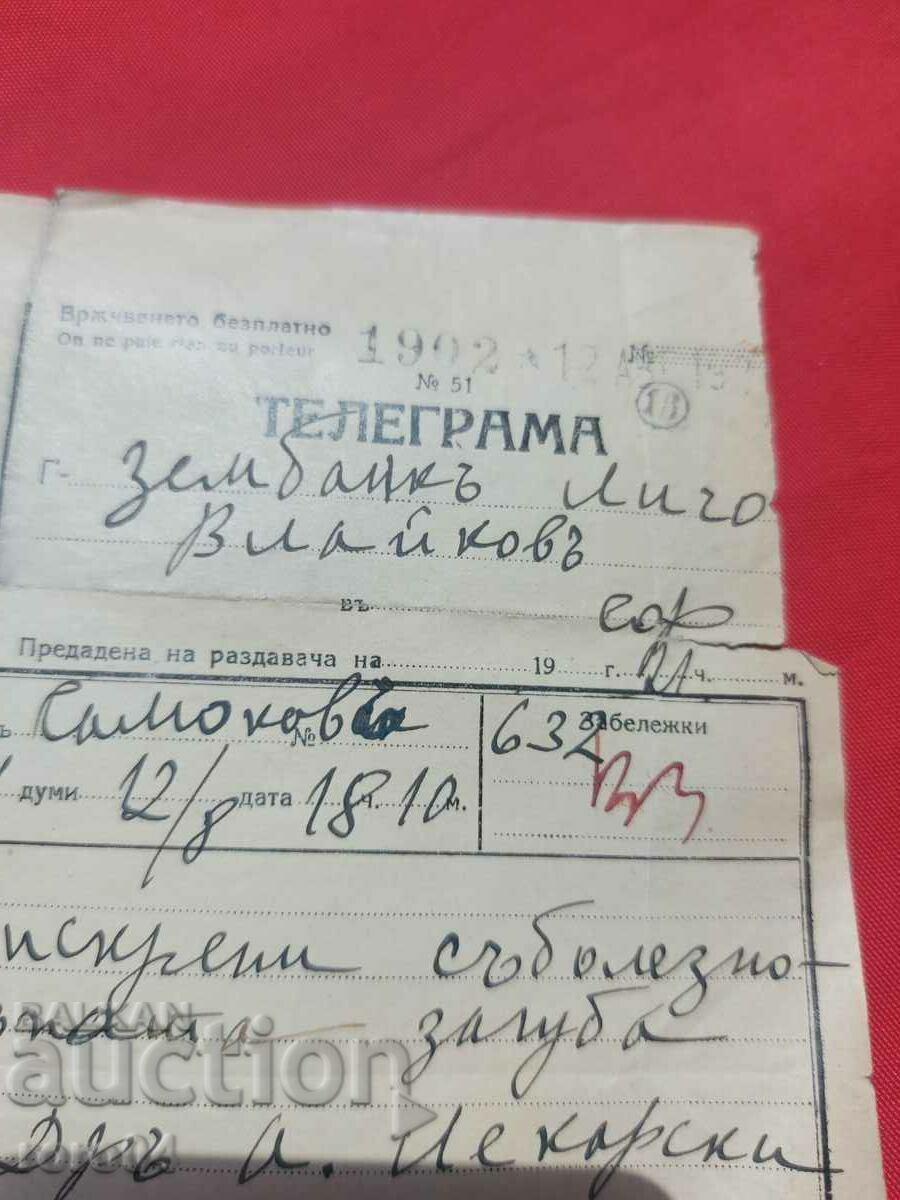 Врѫчването безплатно
On ne paie rien au porteur
1902 * 12 №
№ 51
18
ТЕЛЕГРАМА
Г- Зембанкъ Личо
Влайковъ
въ Соф
Предадена на раздавача на 19 г. 21 ч. м.
Самоковъ № 632 Забележки
думи 12/8 дата 18 ч. 10 м.
искрени съболезно-
загуба
Дръ А. Искорски
BALKAN
auction